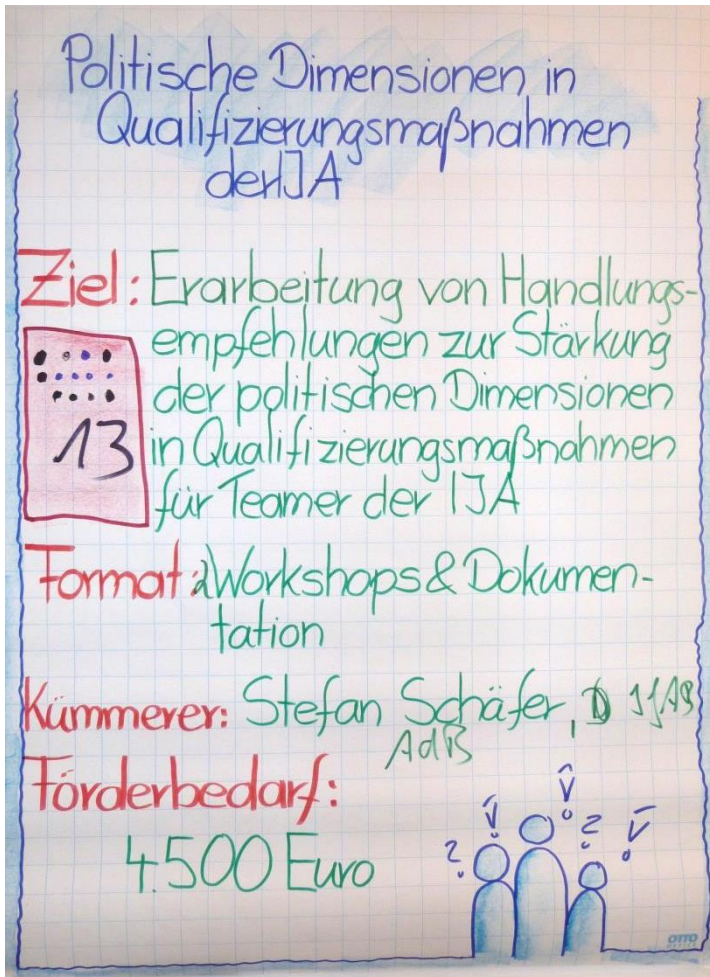 Politische Dimensionen in
Qualifizierungsmaßnahmen
der IJA
Ziel: Erarbeitung von Handlungs-
empfehlungen zur Stärkung
der politischen Dimensionen
in Qualifizierungsmaßnahmen
für Teamer der IJA
13
Format: 2 Workshops & Dokumen-
tation
Kümmerer: Stefan Schäfer,
AdB
Förderbedarf:
4.500 Euro
OTTO